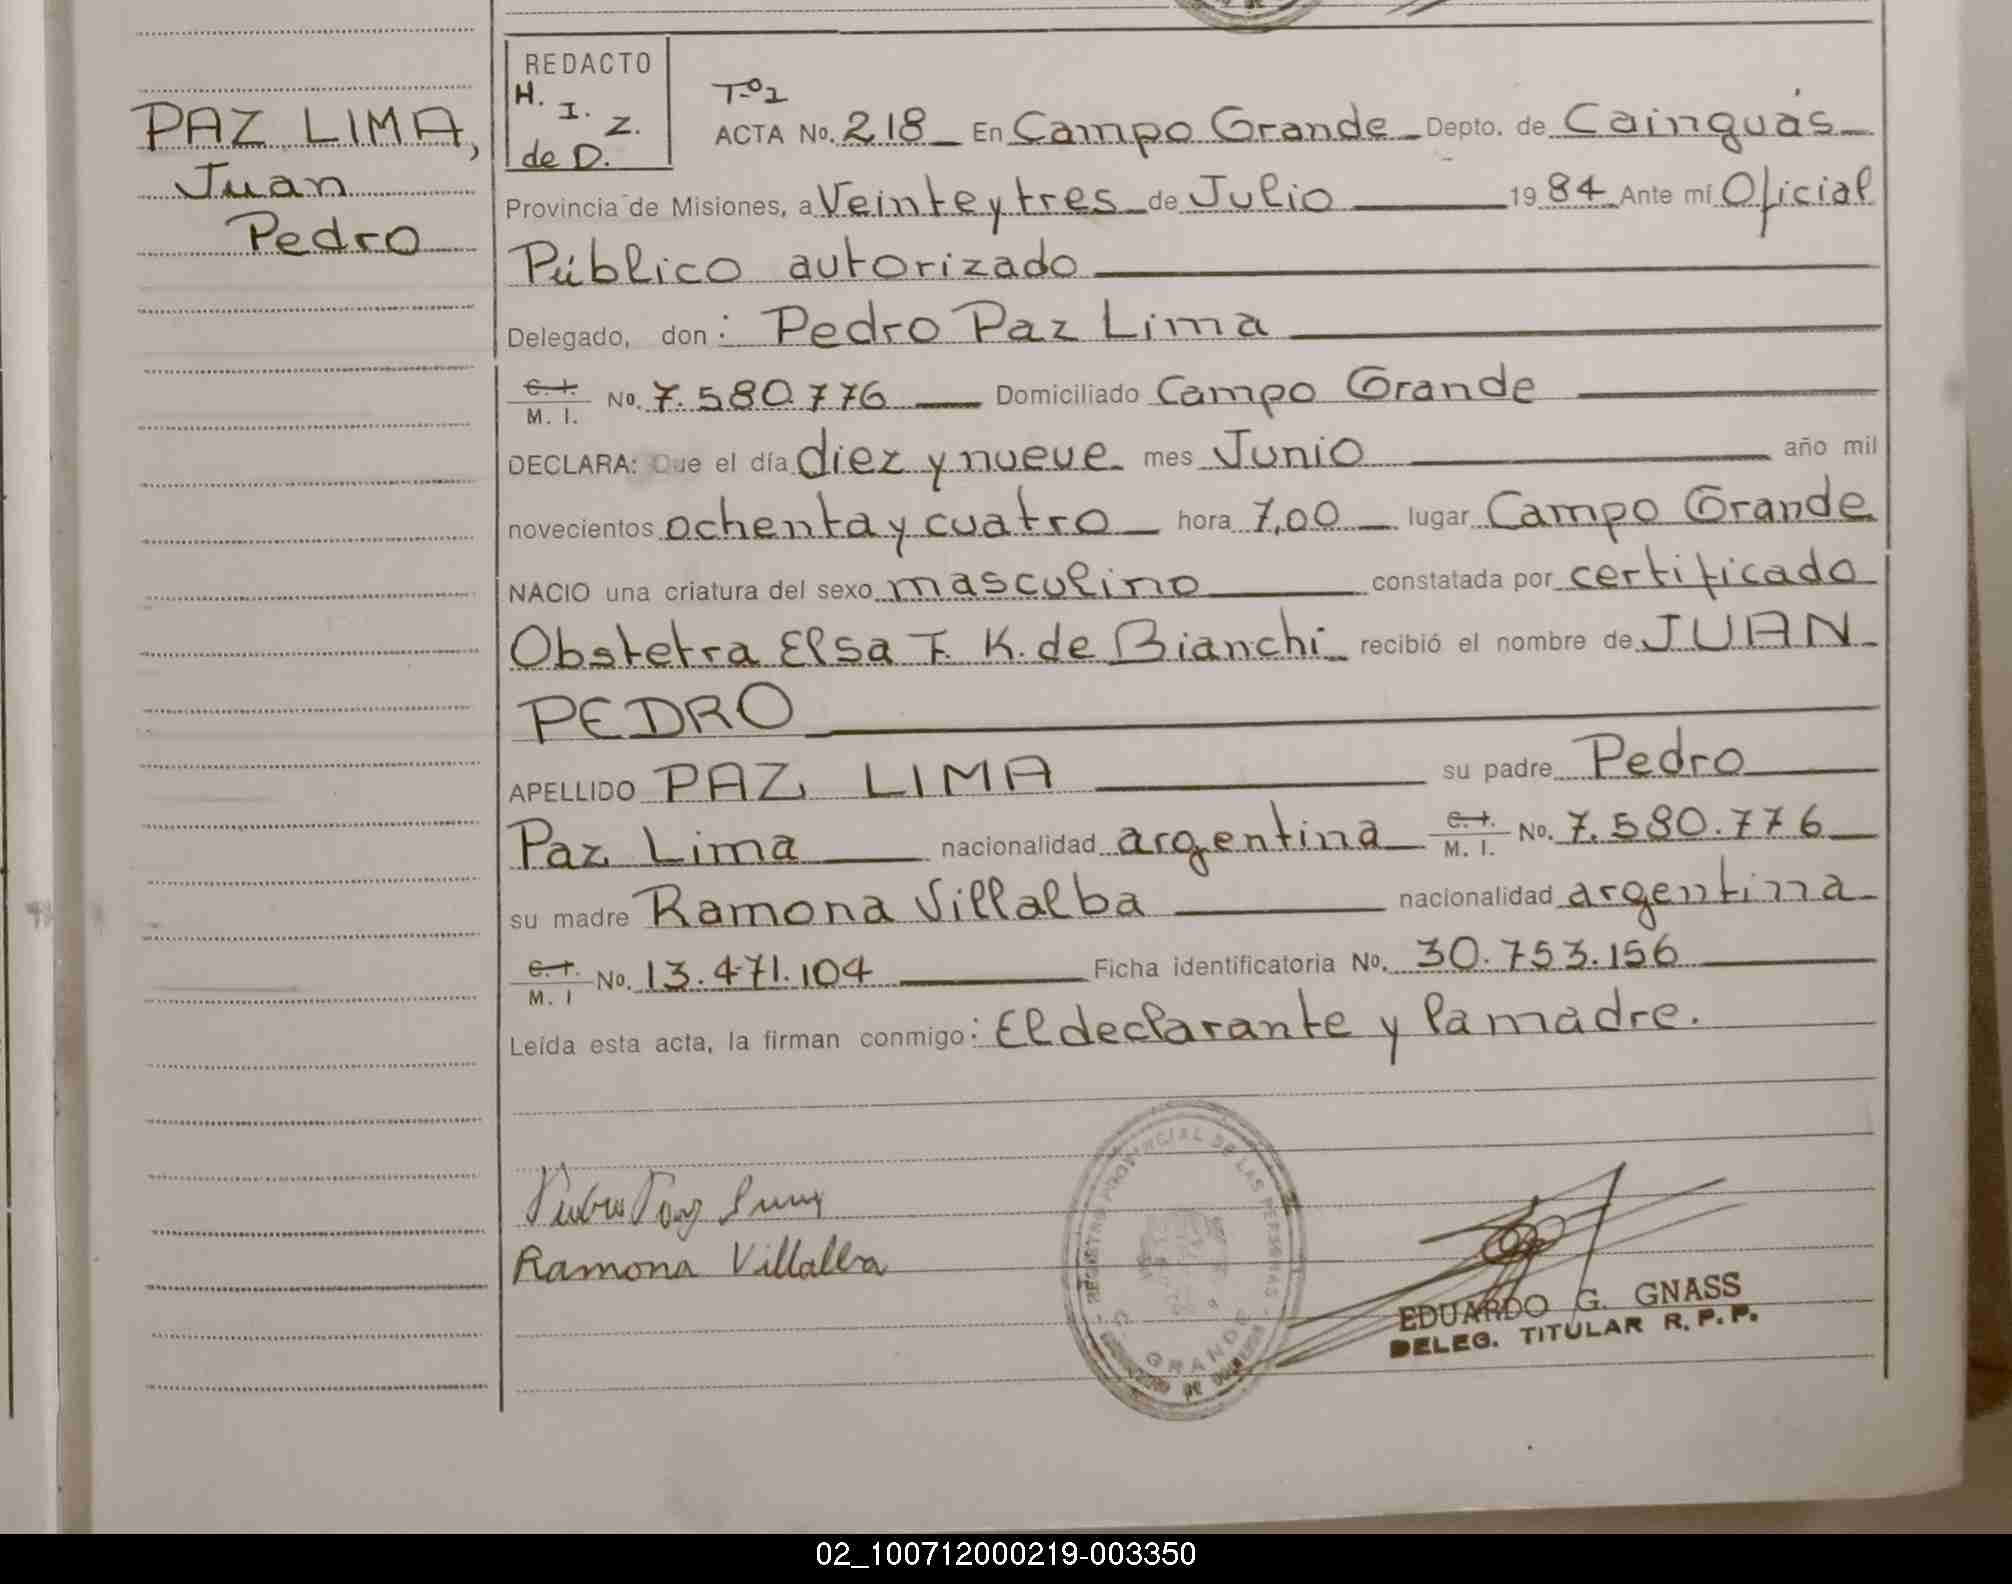 PAZ LIMA,
Juan
Pedro
REDACTO
H. I. Z.
de D.
Tº1
ACTA No. 218 En Campo Grande Depto. de Cainguás
Provincia de Misiones, a Veinte y tres de Julio 1984 Ante mí Oficial
Público autorizado
Delegado, don: Pedro Paz Lima
C. I.
M. I. No. 7.580.776 Domiciliado Campo Grande
DECLARA: Que el día diez y nueve mes Junio año mil
novecientos ochenta y cuatro hora 7,00 lugar Campo Grande
NACIO una criatura del sexo masculino constatada por certificado
Obstetra Elsa F. K. de Bianchi recibió el nombre de JUAN
PEDRO
APELLIDO PAZ LIMA su padre Pedro
Paz Lima nacionalidad argentina C. I. M. I. No. 7.580.776
su madre Ramona Villalba nacionalidad argentina
C. I.
M. I No. 13.471.104 Ficha identificatoria No. 30.753.156
Leída esta acta, la firman conmigo: El declarante y la madre.
Ramona Villalba
REGISTRO PROVINCIAL DE LAS PERSONAS
C. GRANDE
EDUARDO G. GNASS
DELEG. TITULAR R. P. P.
02_100712000219-003350